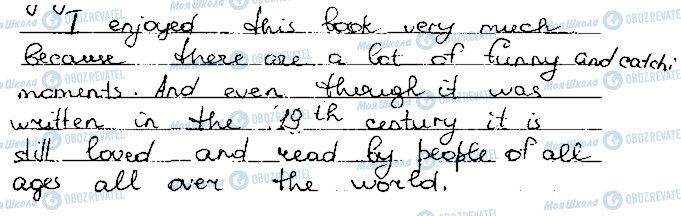 " "I enjoyed this book very much
because there are a lot of funny and catchi
moments. And even through it was
written in the 19th century it is
still loved and read by people of all
ages all over the world.